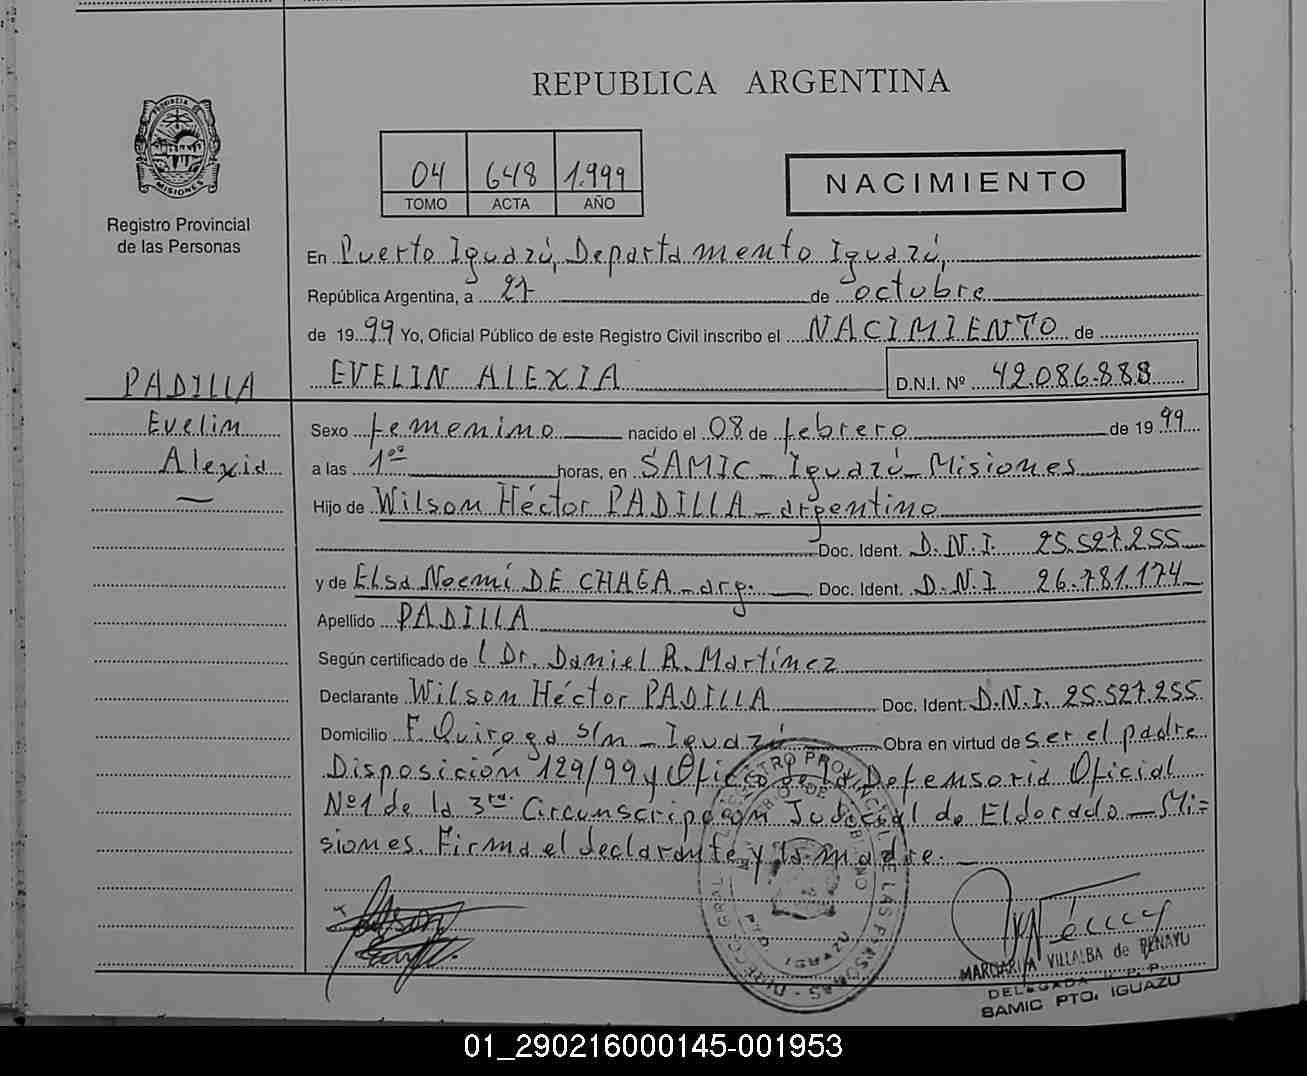 REPUBLICA ARGENTINA
PROVINCIA DE
MISIONES
Registro Provincial
de las Personas
04 648 1.999
TOMO ACTA AÑO
NACIMIENTO
En Puerto Iguazú, Departamento Iguazú,
República Argentina, a 27 de octubre
de 1999 Yo, Oficial Público de este Registro Civil inscribo el NACIMIENTO de
EVELIN ALEXIA D.N.I. Nº 42.086.888
PADILLA
Evelin
Alexia
Sexo femenino nacido el 08 de febrero de 1999
a las 1ºº horas, en SAMIC - Iguazú - Misiones
Hijo de Wilson Héctor PADILLA - argentino
Doc. Ident. D.N.I. 25.527.255
y de Elsa Noemí DE CHAGA - arg. Doc. Ident. D.N.I 26.781.174
Apellido PADILLA
Según certificado de Dr. Daniel R. Martínez
Declarante Wilson Héctor PADILLA Doc. Ident. D.N.I. 25.527.255
Domicilio F. Quiroga s/n - Iguazú Obra en virtud de ser el padre
Disposición 129/99 y Oficio de la Defensoria Oficial
Nº1 de la 3ra. Circunscripción Judicial de Eldorado - Mi=
siones. Firma el declarante y la madre.
MARGARITA VILLALBA de PENAYU
DELEGADA R. P. P.
SAMIC PTO. IGUAZU
01_290216000145-001953